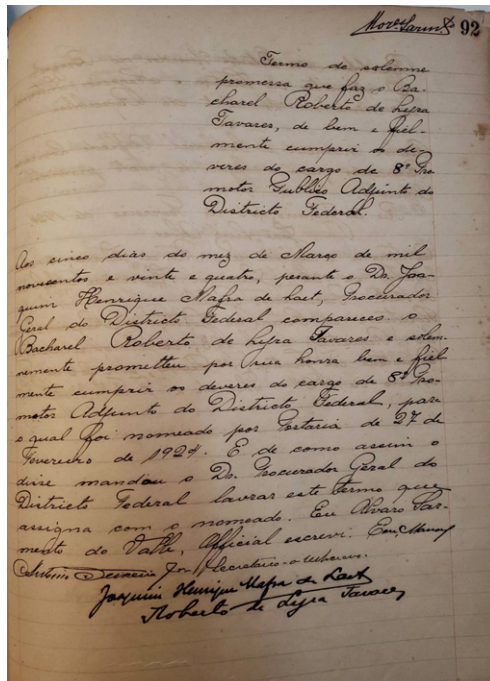 92
Termo de solemne
promessa que faz o Ba-
charel Roberto de Lyra
Tavares, de bem e fiel-
mente cumprir os de-
veres do cargo de 8º Pro-
motor Publico Adjunto do
Districto Federal.
Aos cinco dias do mez de Março de mil
novecentos e vinte e quatro, perante o Dr. Joa-
quim Henrique Mafra de Laet, Procurador
Geral do Districto Federal compareceu o
Bacharel Roberto de Lyra Tavares e solem-
nemente prometteu por sua honra bem e fiel
mente cumprir os deveres do cargo de 8º Pro-
motor Adjunto do Districto Federal, para
o qual foi nomeado por Portaria de 27 de
Fevereiro de 1924. E de como assim o
disse mandou o Dr. Procurador Geral do
Districto Federal lavrar este termo que
assigna com o nomeado. Eu Alvaro Sar-
mento do Valle, Official escrevi. Eu,
Secretario o
Joaquim Henrique Mafra de Laet
Roberto de Lyra Tavares